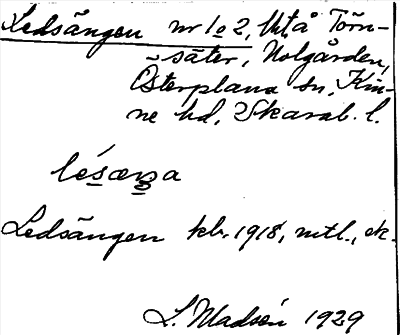 Ledsängen nr 1 o 2, Utå Törn-
säter, Nolgården,
Österplana sn, Kin-
ne hd, Skarab. l.
lésæŋa
Ledsängen kbr. 1918, mtl., ek.
L. Madsén 1929